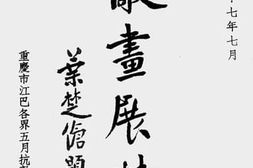 十七年七月
畫展
葉楚傖題
重慶市江巴各界五月抗